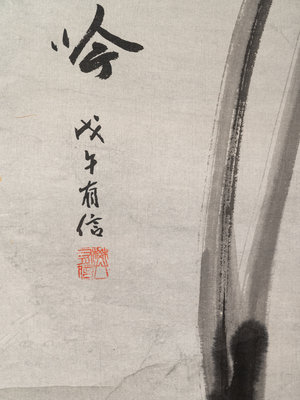 吟
戊午有信